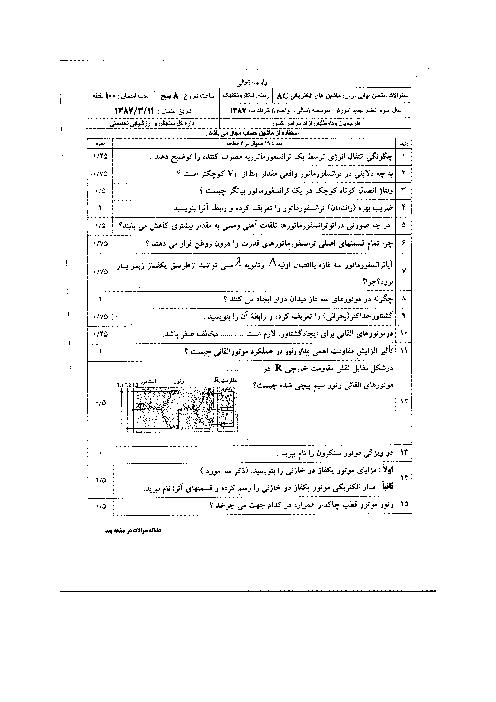 باسمه تعالی
سئوالات امتحان نهایی درس: ماشین های الکتریکی AC رشته: الکتروتکنیک ساعت شروع: ۸ صبح مدت امتحان: ۱۰۰ دقیقه
تاریخ امتحان: ۱۳۸۷/۳/۱۹
استفاده از ماشین حساب مجاز می باشد
ردیف نمره
۱ چگونگی انتقال انرژی توسط یک ترانسفورماتور به مصرف کننده را توضیح دهید. ۱/۲۵
۲ به چه دلایلی در ترانسفورماتور واقعی مقدار از V۱ کوچکتر است؟ ۰/۷۵
۳ ولتاژ اتصال کوتاه کوچک در یک ترانسفورماتور بیانگر چیست؟ ۰/۵
۴ ضریب بهره (راندمان) ترانسفورماتور را تعریف کرده و رابطه آنرا بنویسید. ۱
۵ در چه صورتی در اتوترانسفورماتورها تلفات آهنی ومسی به مقدار بیشتری کاهش می یابند؟ ۰/۵
۶ چرا تمام قسمتهای اصلی ترانسفورماتورهای قدرت را درون روغن قرار می دهند؟ ۰/۷۵
۷ آیا ترانسفورماتور سه فازه با اتصال اولیه Δ وثانویه می توانند ازطریق یکفاز زیر بار
برود؟چرا؟ ۰/۷۵
۸ چگونه در موتورهای سه فاز میدان دوار ایجاد می کنند؟ ۱
۹ گشتاورحداکثر(بحرانی) را تعریف کرده و رابطه آن را بنویسید. ۰/۷۵
۱۰ درموتورهای القائی برای ایجادگشتاور، لازم است .......... مخالف صفر باشد. ۰/۲۵
۱۱ تأثیر افزایش مقاومت اهمی مدار رتور در عملکرد موتور القائی چیست؟ ۱
۱۲ درشکل مقابل نقش مقاومت خارجی R در
موتورهای القائی رتور سیم پیچی شده چیست؟ ۰/۵
رتور R
۱۳ دو ویژگی موتور سنکرون را نام ببرید. ۱
۱۴ اولاً: مزایای موتور یکفاز دو خازنی را بنویسید. (ذکر سه مورد)
ثانیاً: مدار الکتریکی موتور یکفاز دو خازنی را رسم کرده و قسمتهای آنرا نام ببرید. ۱/۵
۱۵ رتور موتور قطب چاکدار همواره در کدام جهت می چرخد؟ ۰/۵
ادامه سوالات در صفحه بعد